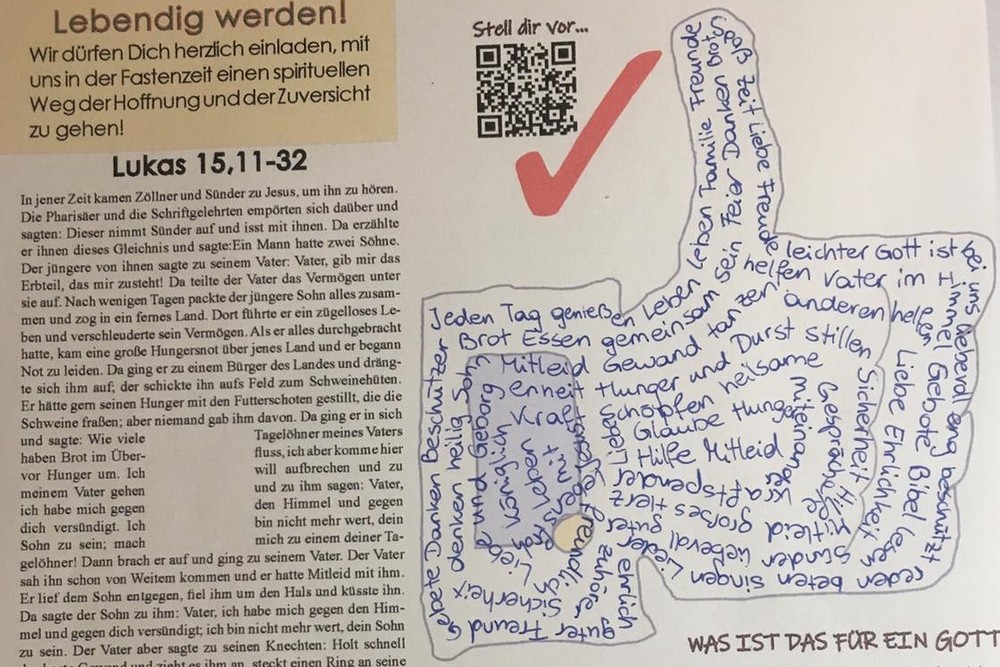 Lebendig werden!
Wir dürfen Dich herzlich einladen, mit
uns in der Fastenzeit einen spirituellen
Weg der Hoffnung und der Zuversicht
zu gehen!
Lukas 15,11-32
In jener Zeit kamen Zöllner und Sünder zu Jesus, um ihn zu hören.
Die Pharisäer und die Schriftgelehrten empörten sich daüber und
sagten: Dieser nimmt Sünder auf und isst mit ihnen. Da erzählte
er ihnen dieses Gleichnis und sagte:Ein Mann hatte zwei Söhne.
Der jüngere von ihnen sagte zu seinem Vater: Vater, gib mir das
Erbteil, das mir zusteht! Da teilte der Vater das Vermögen unter
sie auf. Nach wenigen Tagen packte der jüngere Sohn alles zusam-
men und zog in ein fernes Land. Dort führte er ein zügelloses Le-
ben und verschleuderte sein Vermögen. Als er alles durchgebracht
hatte, kam eine große Hungersnot über jenes Land und er begann
Not zu leiden. Da ging er zu einem Bürger des Landes und dräng-
te sich ihm auf; der schickte ihn aufs Feld zum Schweinehüten.
Er hätte gern seinen Hunger mit den Futterschoten gestillt, die die
Schweine fraßen; aber niemand gab ihm davon. Da ging er in sich
und sagte: Wie viele Tagelöhner meines Vaters
haben Brot im Über- fluss, ich aber komme hier
vor Hunger um. Ich will aufbrechen und zu
meinem Vater gehen und zu ihm sagen: Vater,
ich habe mich gegen den Himmel und gegen
dich versündigt. Ich bin nicht mehr wert, dein
Sohn zu sein; mach mich zu einem deiner Ta-
gelöhner! Dann brach er auf und ging zu seinem Vater. Der Vater
sah ihn schon von Weitem kommen und er hatte Mitleid mit ihm.
Er lief dem Sohn entgegen, fiel ihm um den Hals und küsste ihn.
Da sagte der Sohn zu ihm: Vater, ich habe mich gegen den Him-
mel und gegen dich versündigt; ich bin nicht mehr wert, dein Sohn
zu sein. Der Vater aber sagte zu seinen Knechten: Holt schnell
Gewand und zieht es ihm an, steckt einen Ring an seine
Stell dir vor...
Jeden Tag genießen Leben Leben Familie Freunde
Spaß Zeit Liebe Freude leichter Gott ist bei uns Ueberall eng beschützt
reden beten singen Lieder guter Zuhörer ehrlich
guter Freund Gebete Danken Beschützer
Brot Essen gemeinsam sein Feier Danken Brot
helfen Vater im Himmel Gebote Bibel lesen
Sünder Ueberall
freundlich Sicherheit
denken heilig Sohn
Mitleid Gewand tanzen anderen helfen Liebe Ehrlichkeit
Mitleid großes Herz
und Geborgenheit Hunger und Durst stillen Sicherheit Hilfe
Kraftspender
königlich Kraft schöpfen heilsame Gespräche
Leben mit
Glaube Hunger miteinander
Hilfe Mitleid
WAS IST DAS FÜR EIN GOTT